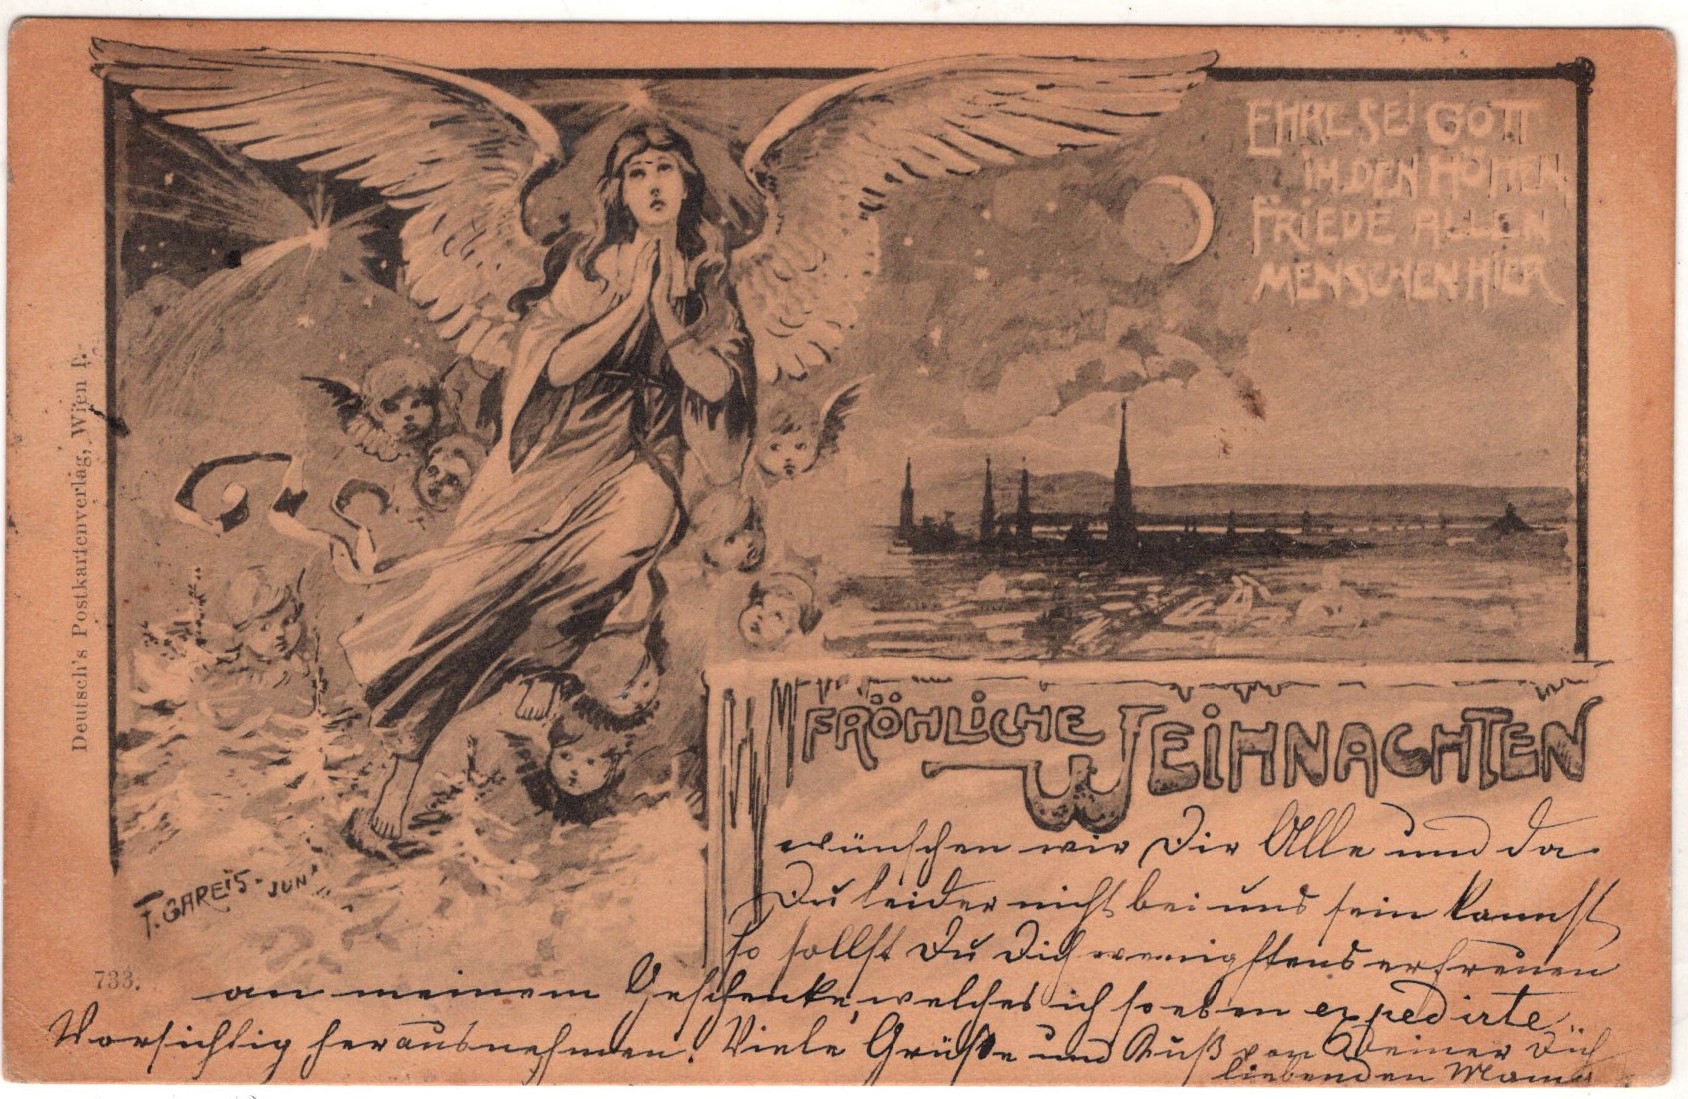 EHRE SEI GOTT
IM DEN HÖHEN
FRIEDE ALLEN
MENSCHEN HIER
Deutsch's Postkartenverlag, Wien I.
FRÖHLICHE WEIHNACHTEN
wünschen wir Dir Alle und da
Du leider nicht bei uns sein kannst
so sollst Du Dich wenigstens erfreuen
an meinem Geschenke, welches ich soeben expedirte
Vorsichtig herausnehmen! Viele Grüße und Kuß von Deiner Dich
liebenden Mama
F. GAREIS JUN
733.